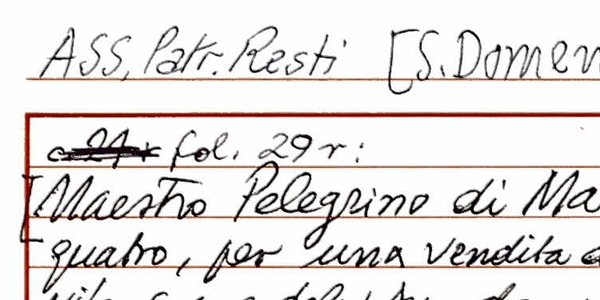 ASS, Patr. Resti [S. Domen
fol. 29r:
[Maestro Pelegrino di Ma
quatro, per una vendita